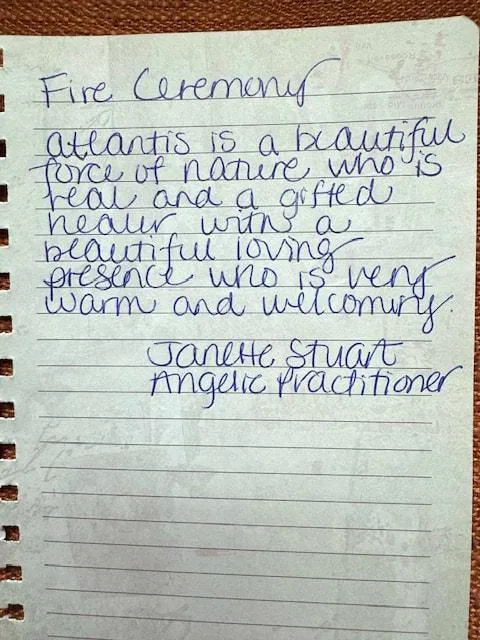 Fire Ceremony
atlantis is a beautiful
force of nature who is
real and a gifted
healer with a
beautiful loving
presence who is very
warm and welcoming.
Janette Stuart
Angelic Practitioner